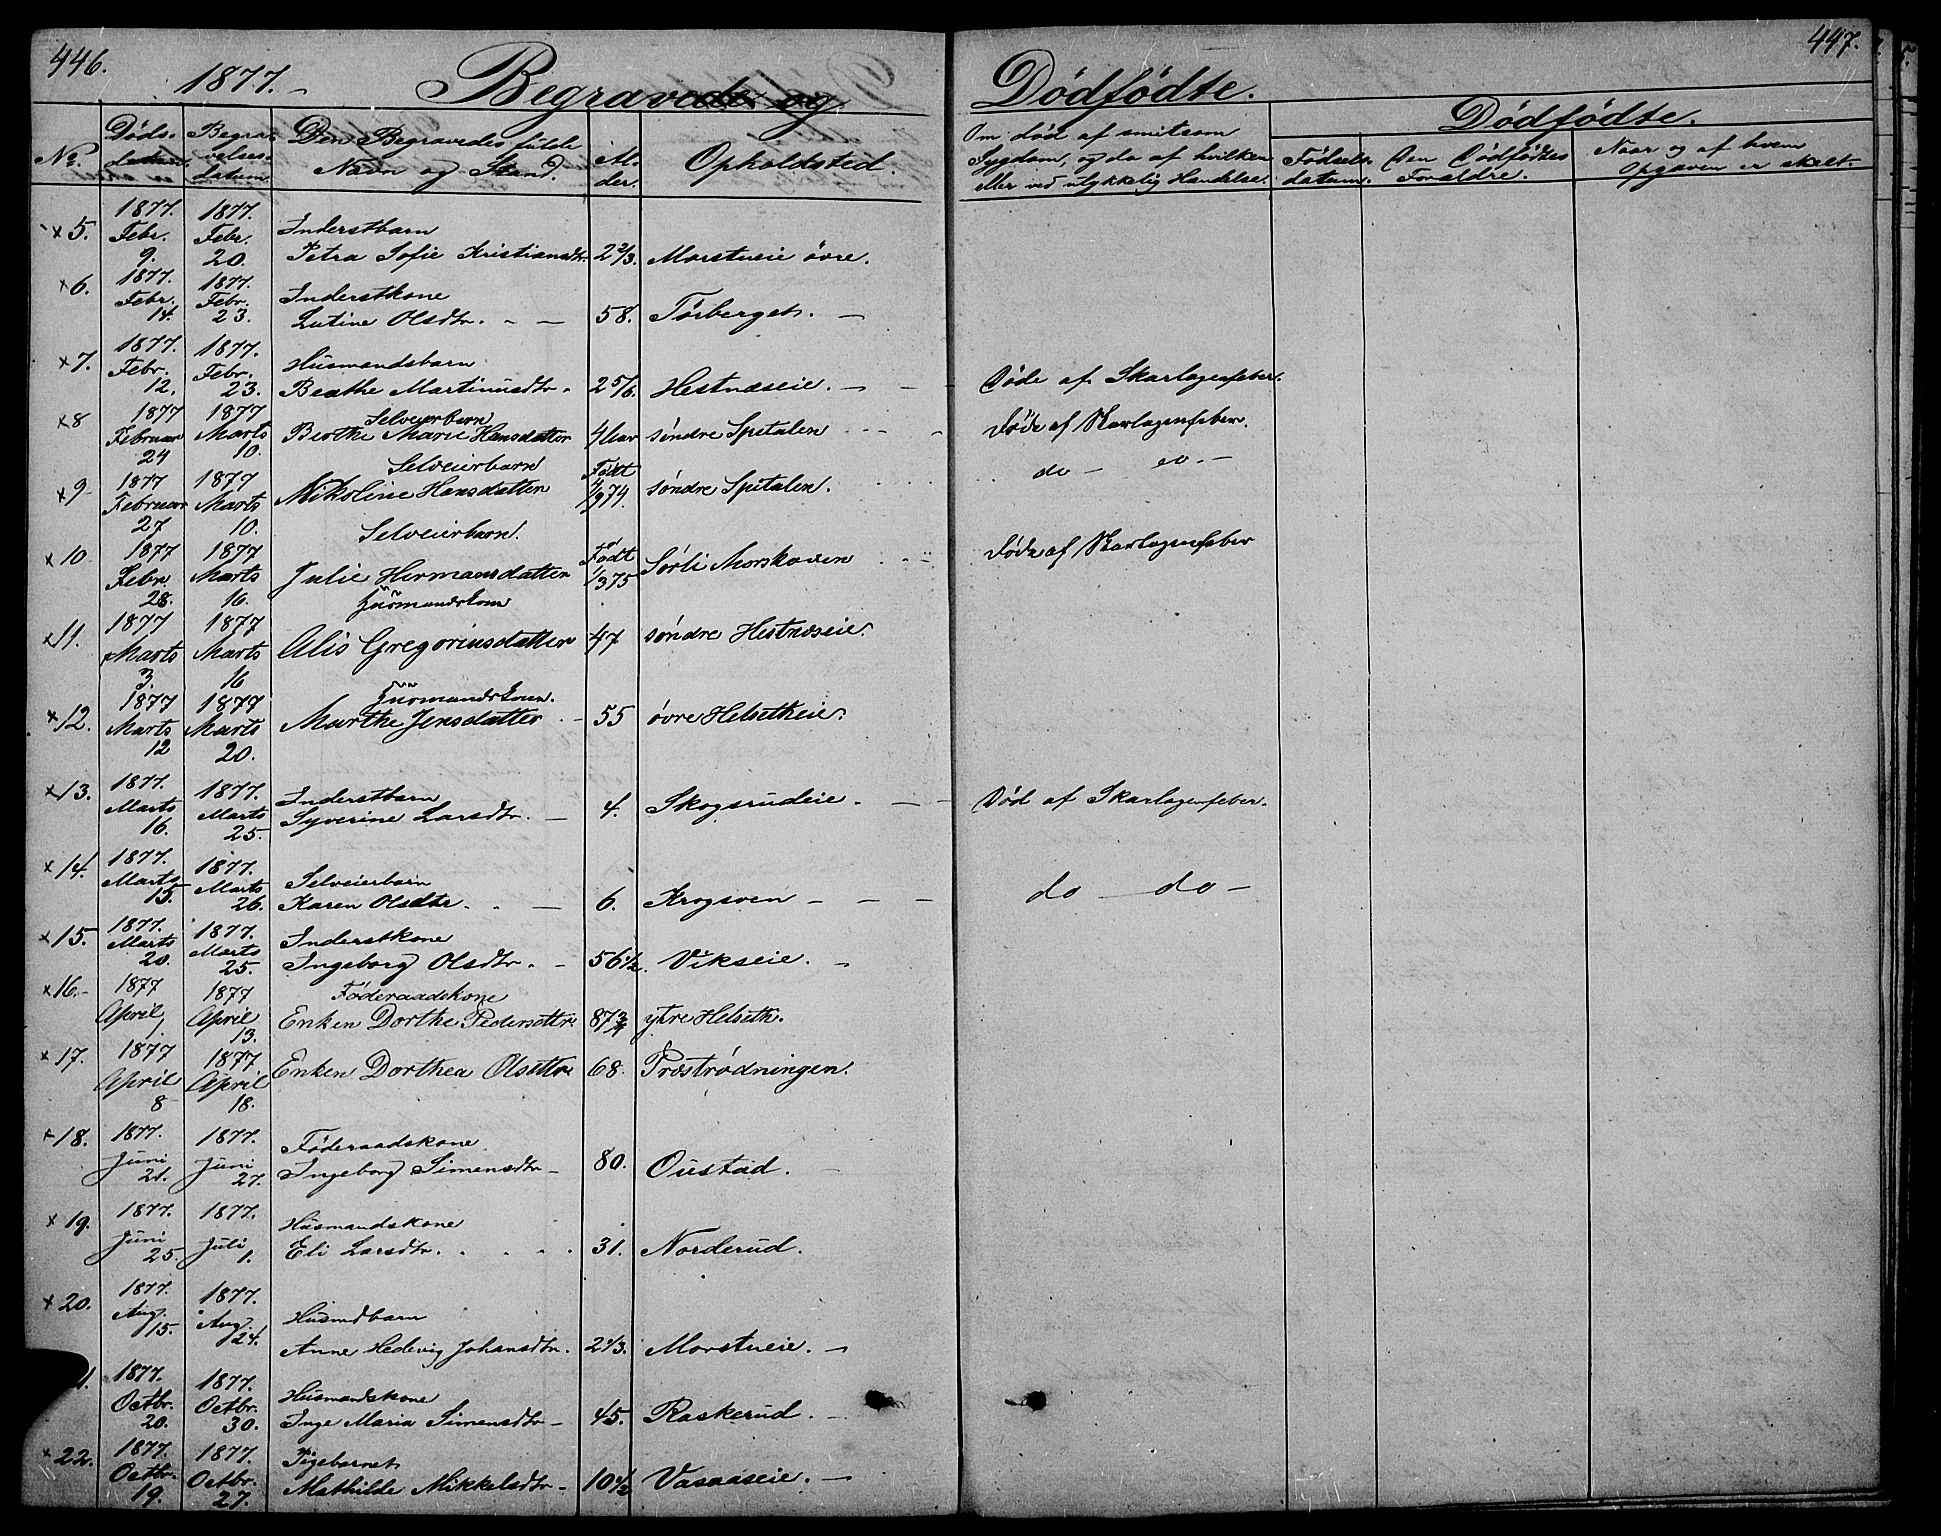 446.
1877.
Begravede og
Dødfødte.
447.
No.
Døds-
datum.
Begra-
velses-
datum.
Den Begravedes fulde
Navn og Stand.
Al-
der.
Opholdsted.
Om død af smitsom
Sygdom, og da af hvilken
eller ved ulykkelig Hændelse.
Dødfødte.
Fødsels-
datum.
Den Dødfødtes
Forældre.
Naar og af hvem
Opgaven er skeet.
x 5. 1877. Febr. 9. 1877. Febr. 20. Inderstbarn
Petra Sofie Kristiansdtr. 2 2/3. Morstueie övre.
x 6. 1877. Febr. 14. 1877. Febr. 23. Inderstkone
Lutine Olsdtr. 58. Törberget.
x 7. 1877. Febr. 12. 1877. Febr. 23. Husmandsbarn
Beathe Martinusdtr. 2 5/6. Hestnæseie. Döde af Skarlagenfeber.
x 8 1877 Februar 24 1877 Marts 10. Selveierbarn
Berthe Marie Hansdatter 4 aar søndre Spitalen Døde af Skarlagenfeber.
x 9 1877 Februar 27 1877 Marts 10. Selveierbarn
Nikoline Hansdatter Født 1/9 74. søndre Spitalen. do - do -
x 10 1877 Febr. 28. 1877 Marts 16. Selveierbarn.
Julie Hermansdatter Født 1/3 75 Sørli Morskoven Døde af Skarlagenfeber
x 11. 1877 Marts 3. 1877 Marts 16 Husmandskone
Alis Gregoriusdatter 47 søndre Hestnæseie.
x 12. 1877 Marts 12 1877 Marts 20. Husmandskone.
Marthe Jensdatter 55 øvre Helsetheie.
x 13. 1877. Marts 16. 1877. Marts 25. Inderstbarn
Syverine Larsdtr. 4. Skogsrudeie. Död af Skarlagenfeber.
x 14. 1877. Marts 15. 1877. Marts 26. Selveierbarn
Karen Olsdtr. 6. Krogsven do - do -
x 15. 1877. Marts 20. 1877. Marts 25. Inderstkone
Ingeborg Olsdtr. 56 1/2. Vikseie.
x 16. 1877 April 1. 1877 April 13. Föderaadskone
Enken Dorthe Pedersdttr. 87 3/4 ytre Helseth.
x 17. 1877 April 8 1877 April 18. Enken Dorthea Olsdttr. 68. Præstrødningen.
x 18. 1877. Juni 21. 1877. Juni 27. Föderaadskone
Ingeborg Simensdtr 80. Oustad.
x 19. 1877. Juni 25. 1877. Juli 1. Husmandskone
Eli Larsdtr. 31. Norderud.
x 20. 1877. Aug. 15. 1877. Aug. 24. Husmdbarn
Anne Hedevig Johansdtr. 2 1/3. Morstueie.
1. 1877. Octbr. 20. 1877. Octbr. 30. Husmandskone
Inge Maria Simensdtr 45. Raskerud.
x 22. 1877. Octbr. 19. 1877. Octbr. 27. Pigebarnet
Mathilde Mikkelsdtr 10 1/2 Vasaaseie.